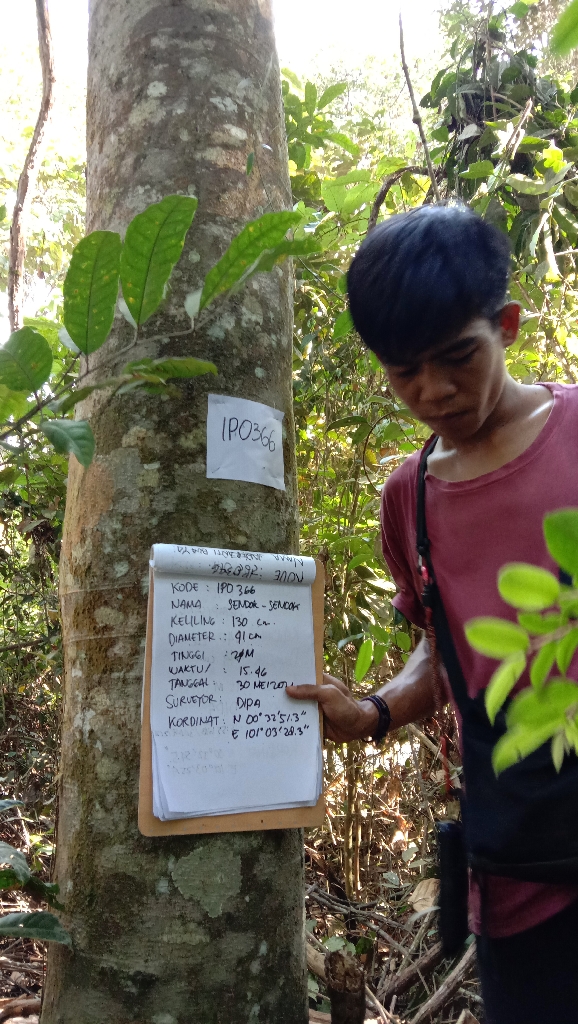 IPO366
KODE : IPO366
NAMA : SENDOK-SENDOK
KELILING : 130 cm
DIAMETER : 41 cm
TINGGI : 24M
WAKTU/ : 15.46
TANGGAL : 30 MEI
SURVEYOR : DIPA
KORDINAT : N 00° 32' 51.3"
E 101° 03' 28.3"